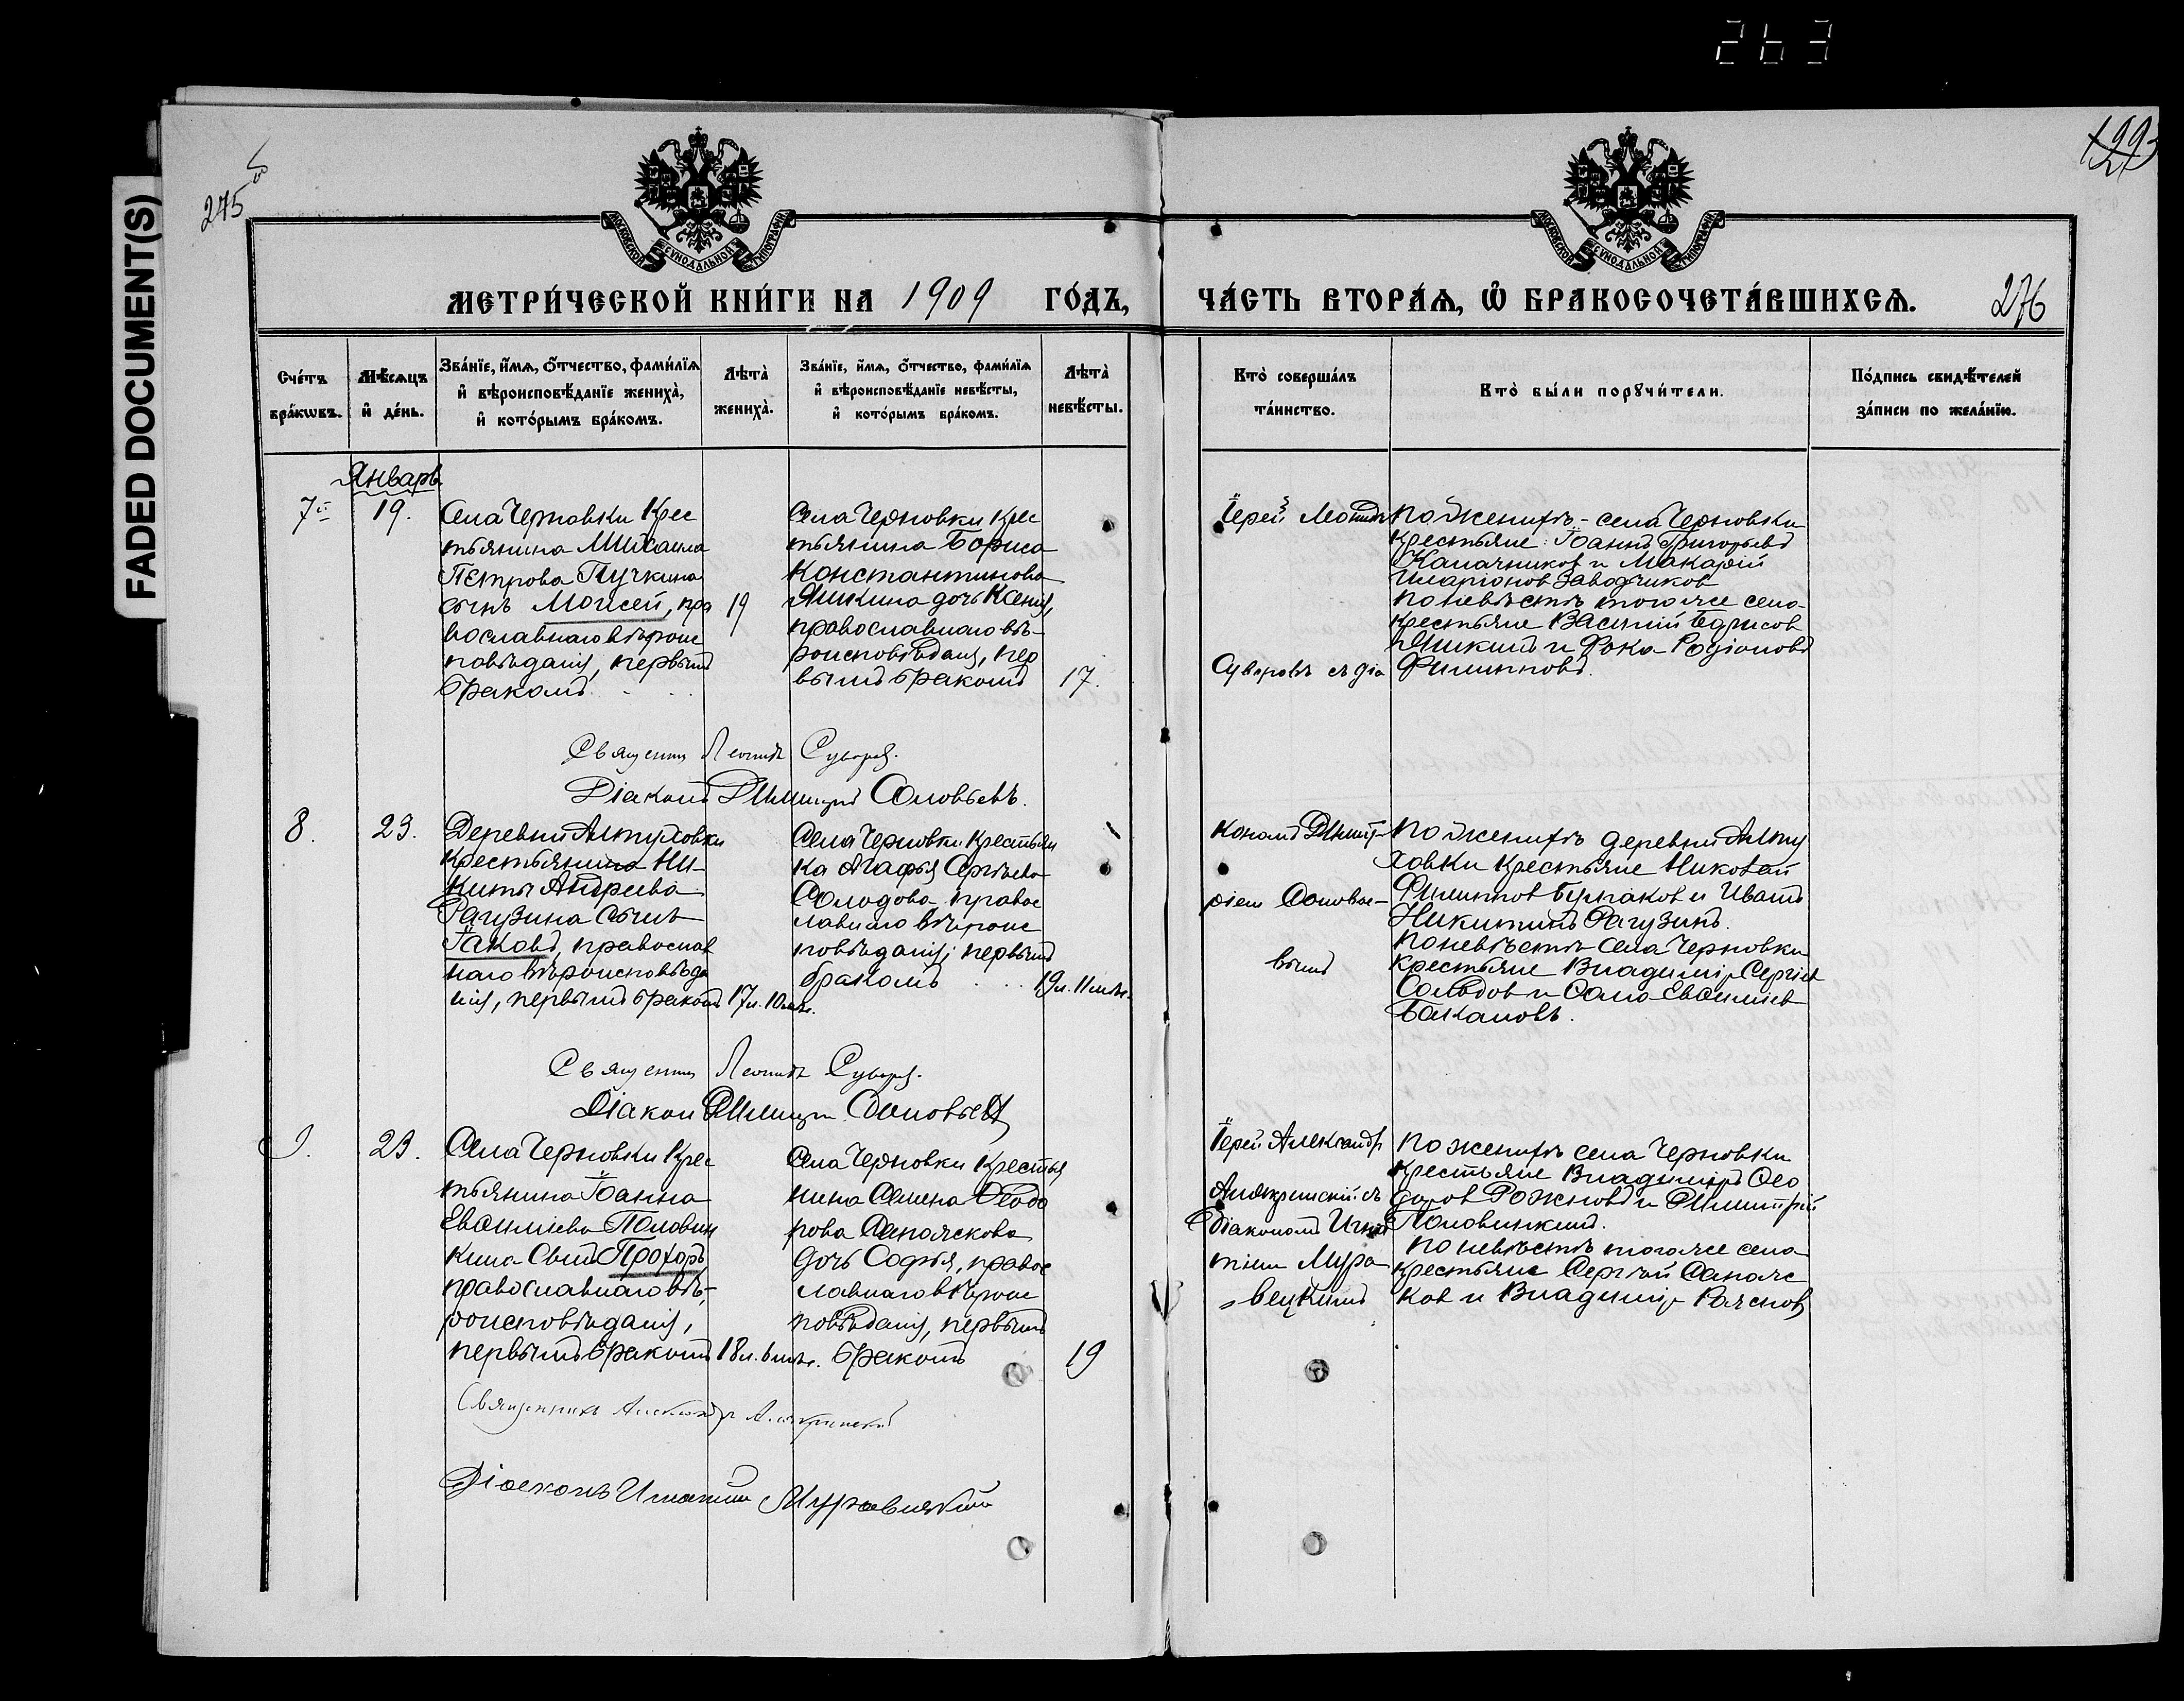 263
FADED DOCUMENT(S)
275
1993
МОСКОВСКОЙ СѴНОДАЛЬНОЙ ТИПОГРАФІИ
МОСКОВСКОЙ СѴНОДАЛЬНОЙ ТИПОГРАФІИ
МЕТРИ́ЧЕСКОЙ КНИ́ГИ НА 1909 ГО́ДЪ,
ЧА́СТЬ ВТОРА́Ѧ, Ѡ҆ БРАКОСОЧЕТА́ВШИХСѦ. 276
Сче́тъ бра́кѡвъ.
Мѣ́сяцъ и҆ де́нь.
Зва́нїе, и҆́мѧ, ѻ҆́тчество, фами́лїѧ и҆ вѣроисповѣ́данїе жениха̀, и҆ кото́рымъ бра́комъ.
Лѣта̀ жениха̀.
Зва́нїе, и҆́мѧ, ѻ҆́тчество, фами́лїѧ и҆ вѣроисповѣ́данїе невѣ́сты, и҆ кото́рымъ бра́комъ.
Лѣта̀ невѣ́сты.
Кто̀ соверша́лъ та́инство.
Кто̀ бы́ли порꙋчи́тели.
По́дпись свидѣ́телей за́писи по жела́нїю.
Январь
7й
19.
Села Черновки Крес
тьянина Михаила
Петрова Пучкина
сынъ Моисей, пра
вославнаго вѣроис
повѣданія, первымъ
бракомъ
19
Села Черновки Крес
тьянина Бориса
Константинова
Яшкина дочь Ксенія,
православнаго вѣ-
роисповѣданія, пер
вымъ бракомъ
17.
Іерей Леонидъ
Суворовъ съ діа
По женихѣ - села Черновки
крестьяне: Іоаннъ Григорьевъ
Калачников и Макарій
Иларіонов Заводчиков
по невѣстѣ того же села
крестьяне Василій Борисов
Яшкинъ и Фока Родіоновъ
Филипповъ.
Священникъ Леонидъ Суворовъ.
Діаконъ Димитрій Соловьевъ.
8.
23.
Деревни Алтуховки
Крестьянина Ни-
киты Андреева
Рагузина сынъ
Іаковъ, православ
наго вѣроисповѣда
нія, первымъ бракомъ
17л. 10мѣс.
Села Черновки Крестьян
ка Агафья Сергѣева
Солодова, правос
лавнаго вѣроис
повѣданія, первымъ
бракомъ
19л. 11мѣс.
кономъ Димит-
ріем Соловье-
вымъ
По женихѣ деревни Алту
ховки крестьяне Николай
Филиппов Бурлаков и Иванъ
Никитинъ Рагузинъ.
По невѣстѣ села Черновки
крестьяне Владиміръ Сергѣев
Солодов и Евсиміев
Бакановъ.
Священникъ Леонидъ Суворовъ.
Діакон Димитрій Соловьевъ
9.
23.
Села Черновки Крес
тьянина Іоанна
Евсиміева Половин
кина сынъ Прохоръ
православнаго вѣ-
роисповѣданія,
первымъ бракомъ
18л. 6мѣс.
Села Черновки Крестья
нина Семена Ѳеодо
рова Сапожскова
дочь Софья, правос
лавнаго вѣроис
повѣданія, первымъ
бракомъ
19
Іерей Александръ
Алякринскій съ
Діакономъ Игна
тіем Мура-
вецкимъ
По женихѣ села Черновки
крестьяне Владиміръ Ѳео
доров Рожновъ и Димитрій
Половинкинъ.
По невѣстѣ того же села
крестьяне Сергѣй Сапожс
ков и Владиміръ Рожнов
Священникъ Александръ Алякринскій
Діаконъ Игнатій Муравецкій